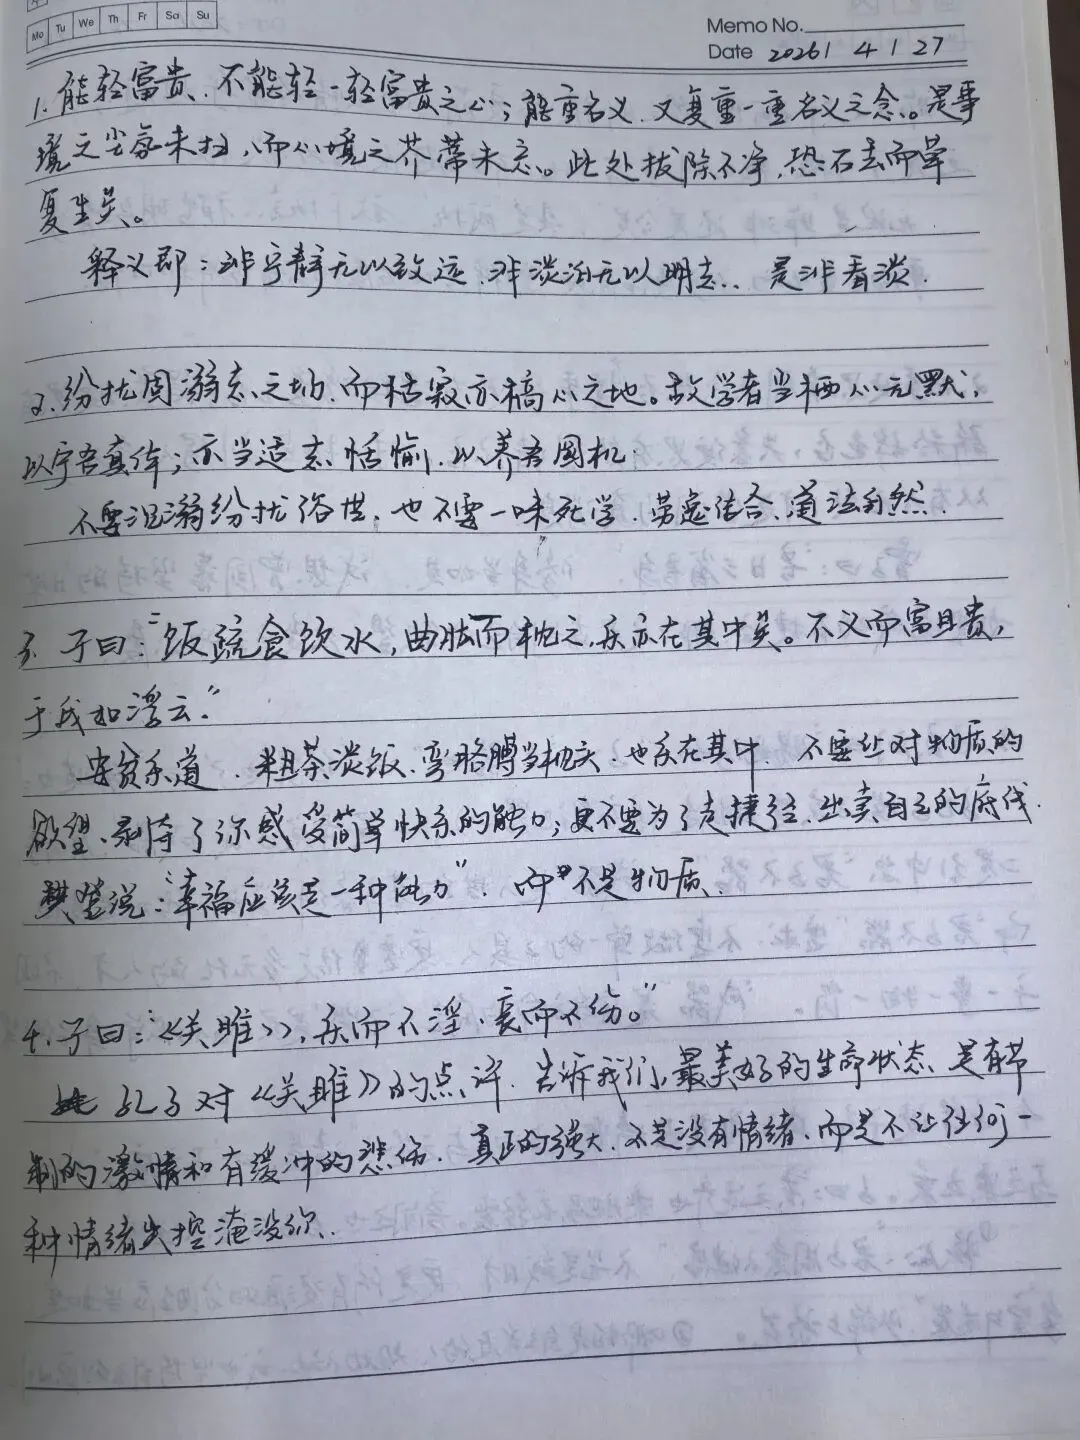 Mo Tu We Th Fr Sa Su
Memo No.
Date 2026 / 4 / 27
1. 能轻富贵、不能轻一轻富贵之心；能重名义、又复重一重名义之念。是事
境之尘氛未扫，而心境之芥蒂未忘。此处拔除不净，恐石去而草
复生矣。
释义即：非宁静无以致远、非淡泊无以明志.. 是非看淡.
2. 纷扰固溺志之场、而枯寂亦槁心之地。故学者当栖心元默，
以宁吾真体；亦当适志恬愉、以养吾圆机.
不要沉溺纷扰俗世、也不要一味死学、劳逸结合、道法自然.
3. 子曰："饭疏食饮水，曲肱而枕之，乐亦在其中矣。不义而富且贵，
于我如浮云."
安贫乐道、粗茶淡饭、弯胳膊当枕头、也乐在其中、不要让对物质的
欲望、剥夺了你感受简单快乐的能力；更不要为了走捷径、出卖自己的底线.
樊登说："幸福应该是一种能力"、而不是物质、
4. 子曰："《关雎》，乐而不淫、哀而不伤。"
孔子对《关雎》的点评、告诉我们，最美好的生命状态、是有节
制的激情和有缓冲的悲伤、真正的强大、不是没有情绪、而是不让任何一
种情绪失控淹没你、